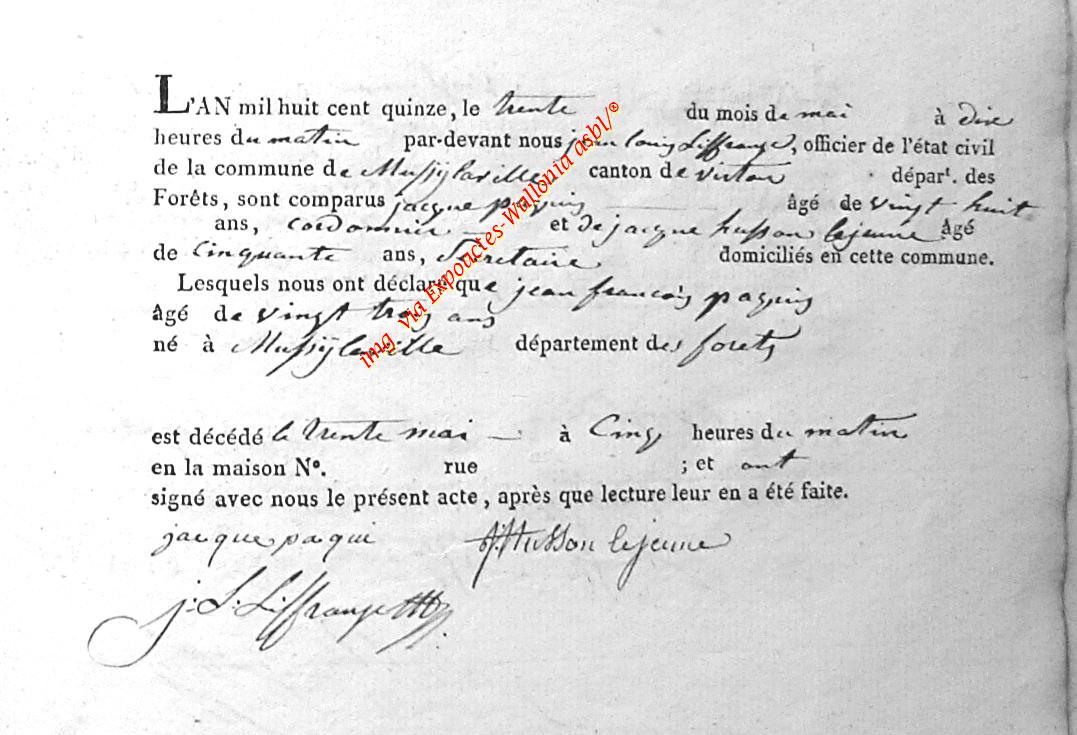 L'AN mil huit cent quinze, le trente du mois de mai à dix
heures du matin par-devant nous jean louis Liffrange, officier de l'état civil
de la commune de Mussÿlaville canton de virton départ. des
Forêts, sont comparus jacque paquin âgé de vingt huit
ans, cordonnier et de jacque husson lejeune âgé
de Cinquante ans, Secretaire domiciliés en cette commune.
Lesquels nous ont déclaré que jean francois paquin
âgé de vingt trois ans
né à Mussÿlaville département des forets
est décédé le trente mai à Cinq heures du matin
en la maison N°. rue ; et ont
signé avec nous le présent acte, après que lecture leur en a été faite.
jacque paqui J. Husson lejeune
j: L: Liffrange
img via Expoactes-Wallonia asbl/©